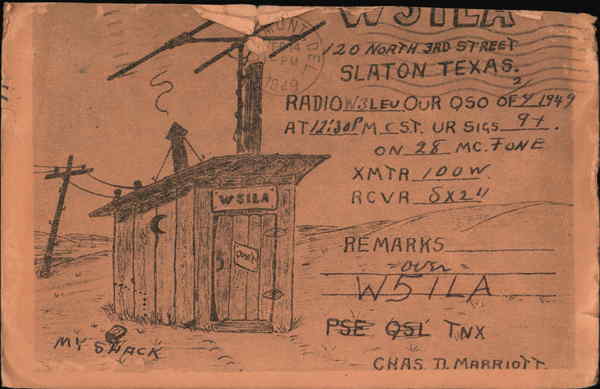 W5ILA
120 NORTH 3RD STREET
SLATON TEXAS.
RADIO W3LEU OUR QSO OF 2/4 1949
AT 12:30P M. CST. UR SIGS 9+.
ON 28 MC. FONE
XMTR 100W
RCVR SX24
REMARKS
over
W5ILA
PSE QSL TNX
CHAS. D. MARRIOTT
W5ILA
MY SHACK
MONT DEL
PM
1949